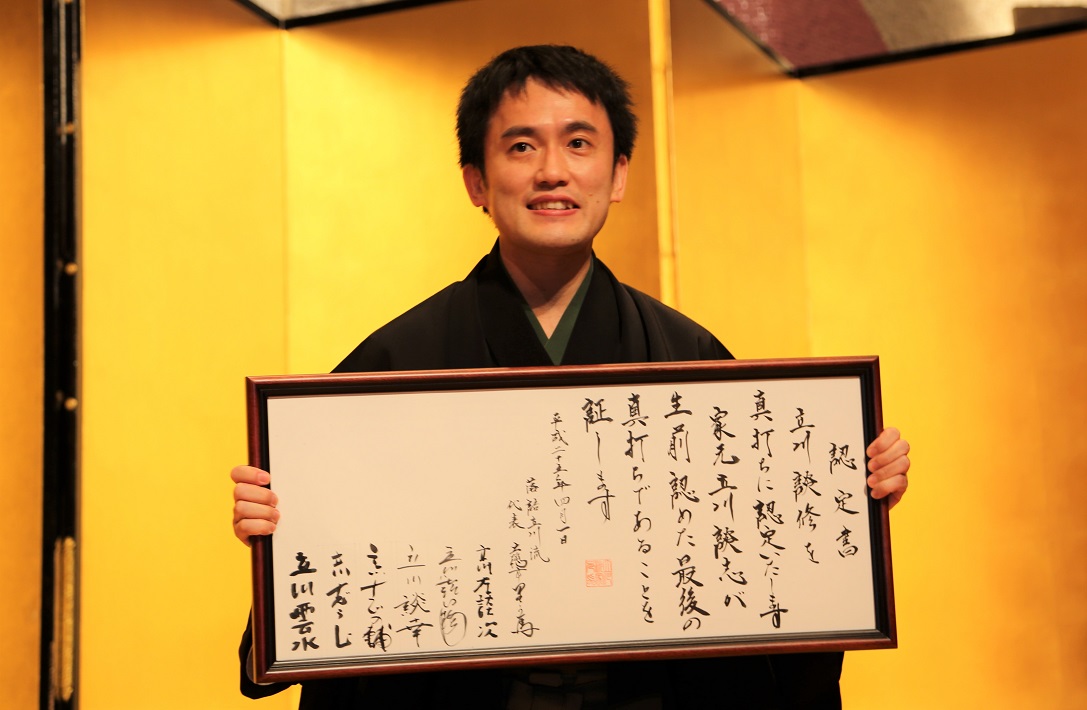 認定書
立川談修を
真打ちに認定いたします
家元立川談志が
生前認めた最後の
真打ちであることを
証します
平成二十五年四月一日
落語立川流
代表 土橋亭里う馬
立川左談次
立川談四楼
立川談幸
立川雲水